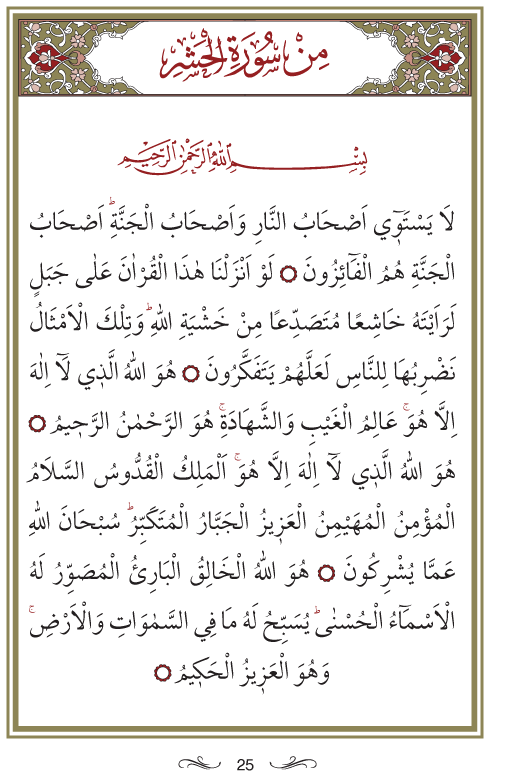 مِنْ سُورَةِ الْحَشْرِ
بِسْمِ اللّٰهِ الرَّحْمٰنِ الرَّح۪يمِ
لَا يَسْتَو۪ٓي اَصْحَابُ النَّارِ وَاَصْحَابُ الْجَنَّةِۜ اَصْحَابُ
الْجَنَّةِ هُمُ الْفَٓائِزُونَ ۝ لَوْ اَنْزَلْنَا هٰذَا الْقُرْاٰنَ عَلٰى جَبَلٍ
لَرَاَيْتَهُ خَاشِعًا مُتَصَدِّعًا مِنْ خَشْيَةِ اللّٰهِۜ وَتِلْكَ الْاَمْثَالُ
نَضْرِبُهَا لِلنَّاسِ لَعَلَّهُمْ يَتَفَكَّرُونَ ۝ هُوَ اللّٰهُ الَّذ۪ي لَٓا اِلٰهَ
اِلَّا هُوَۚ عَالِمُ الْغَيْبِ وَالشَّهَادَةِۚ هُوَ الرَّحْمٰنُ الرَّح۪يمُ ۝
هُوَ اللّٰهُ الَّذ۪ي لَٓا اِلٰهَ اِلَّا هُوَۚ اَلْمَلِكُ الْقُدُّوسُ السَّلَامُ
الْمُؤْمِنُ الْمُهَيْمِنُ الْعَز۪يزُ الْجَبَّارُ الْمُتَكَبِّرُۜ سُبْحَانَ اللّٰهِ
عَمَّا يُشْرِكُونَ ۝ هُوَ اللّٰهُ الْخَالِقُ الْبَارِئُ الْمُصَوِّرُ لَهُ
الْاَسْمَٓاءُ الْحُسْنٰىۜ يُسَبِّحُ لَهُ مَا فِي السَّمٰوَاتِ وَالْاَرْضِۚ
وَهُوَ الْعَز۪يزُ الْحَك۪يمُ ۝
25